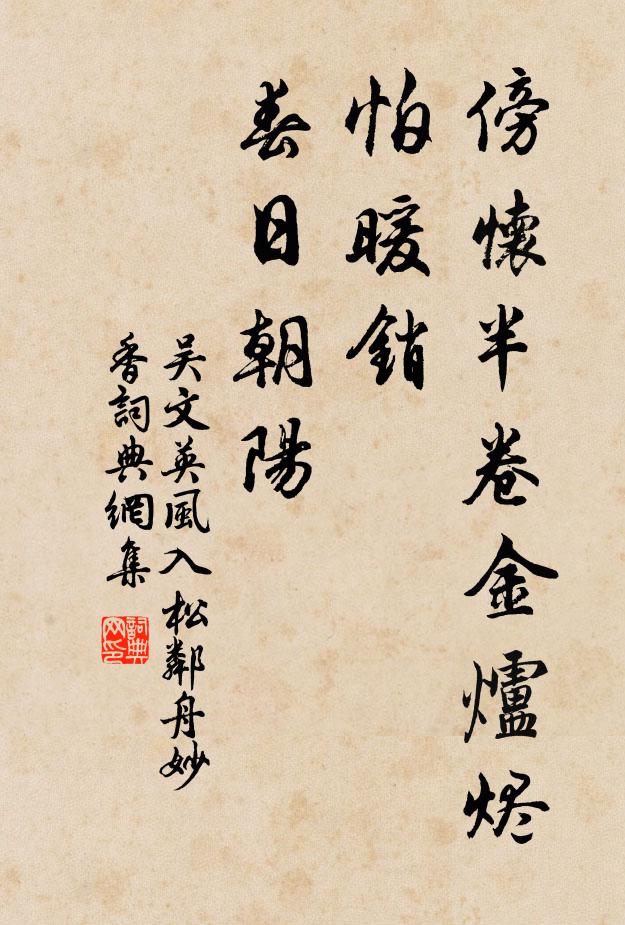 傍懷半卷金爐烬
怕暖銷
春日朝陽
吴文英風入松鄰舟妙
香詞典網集
詞典网印